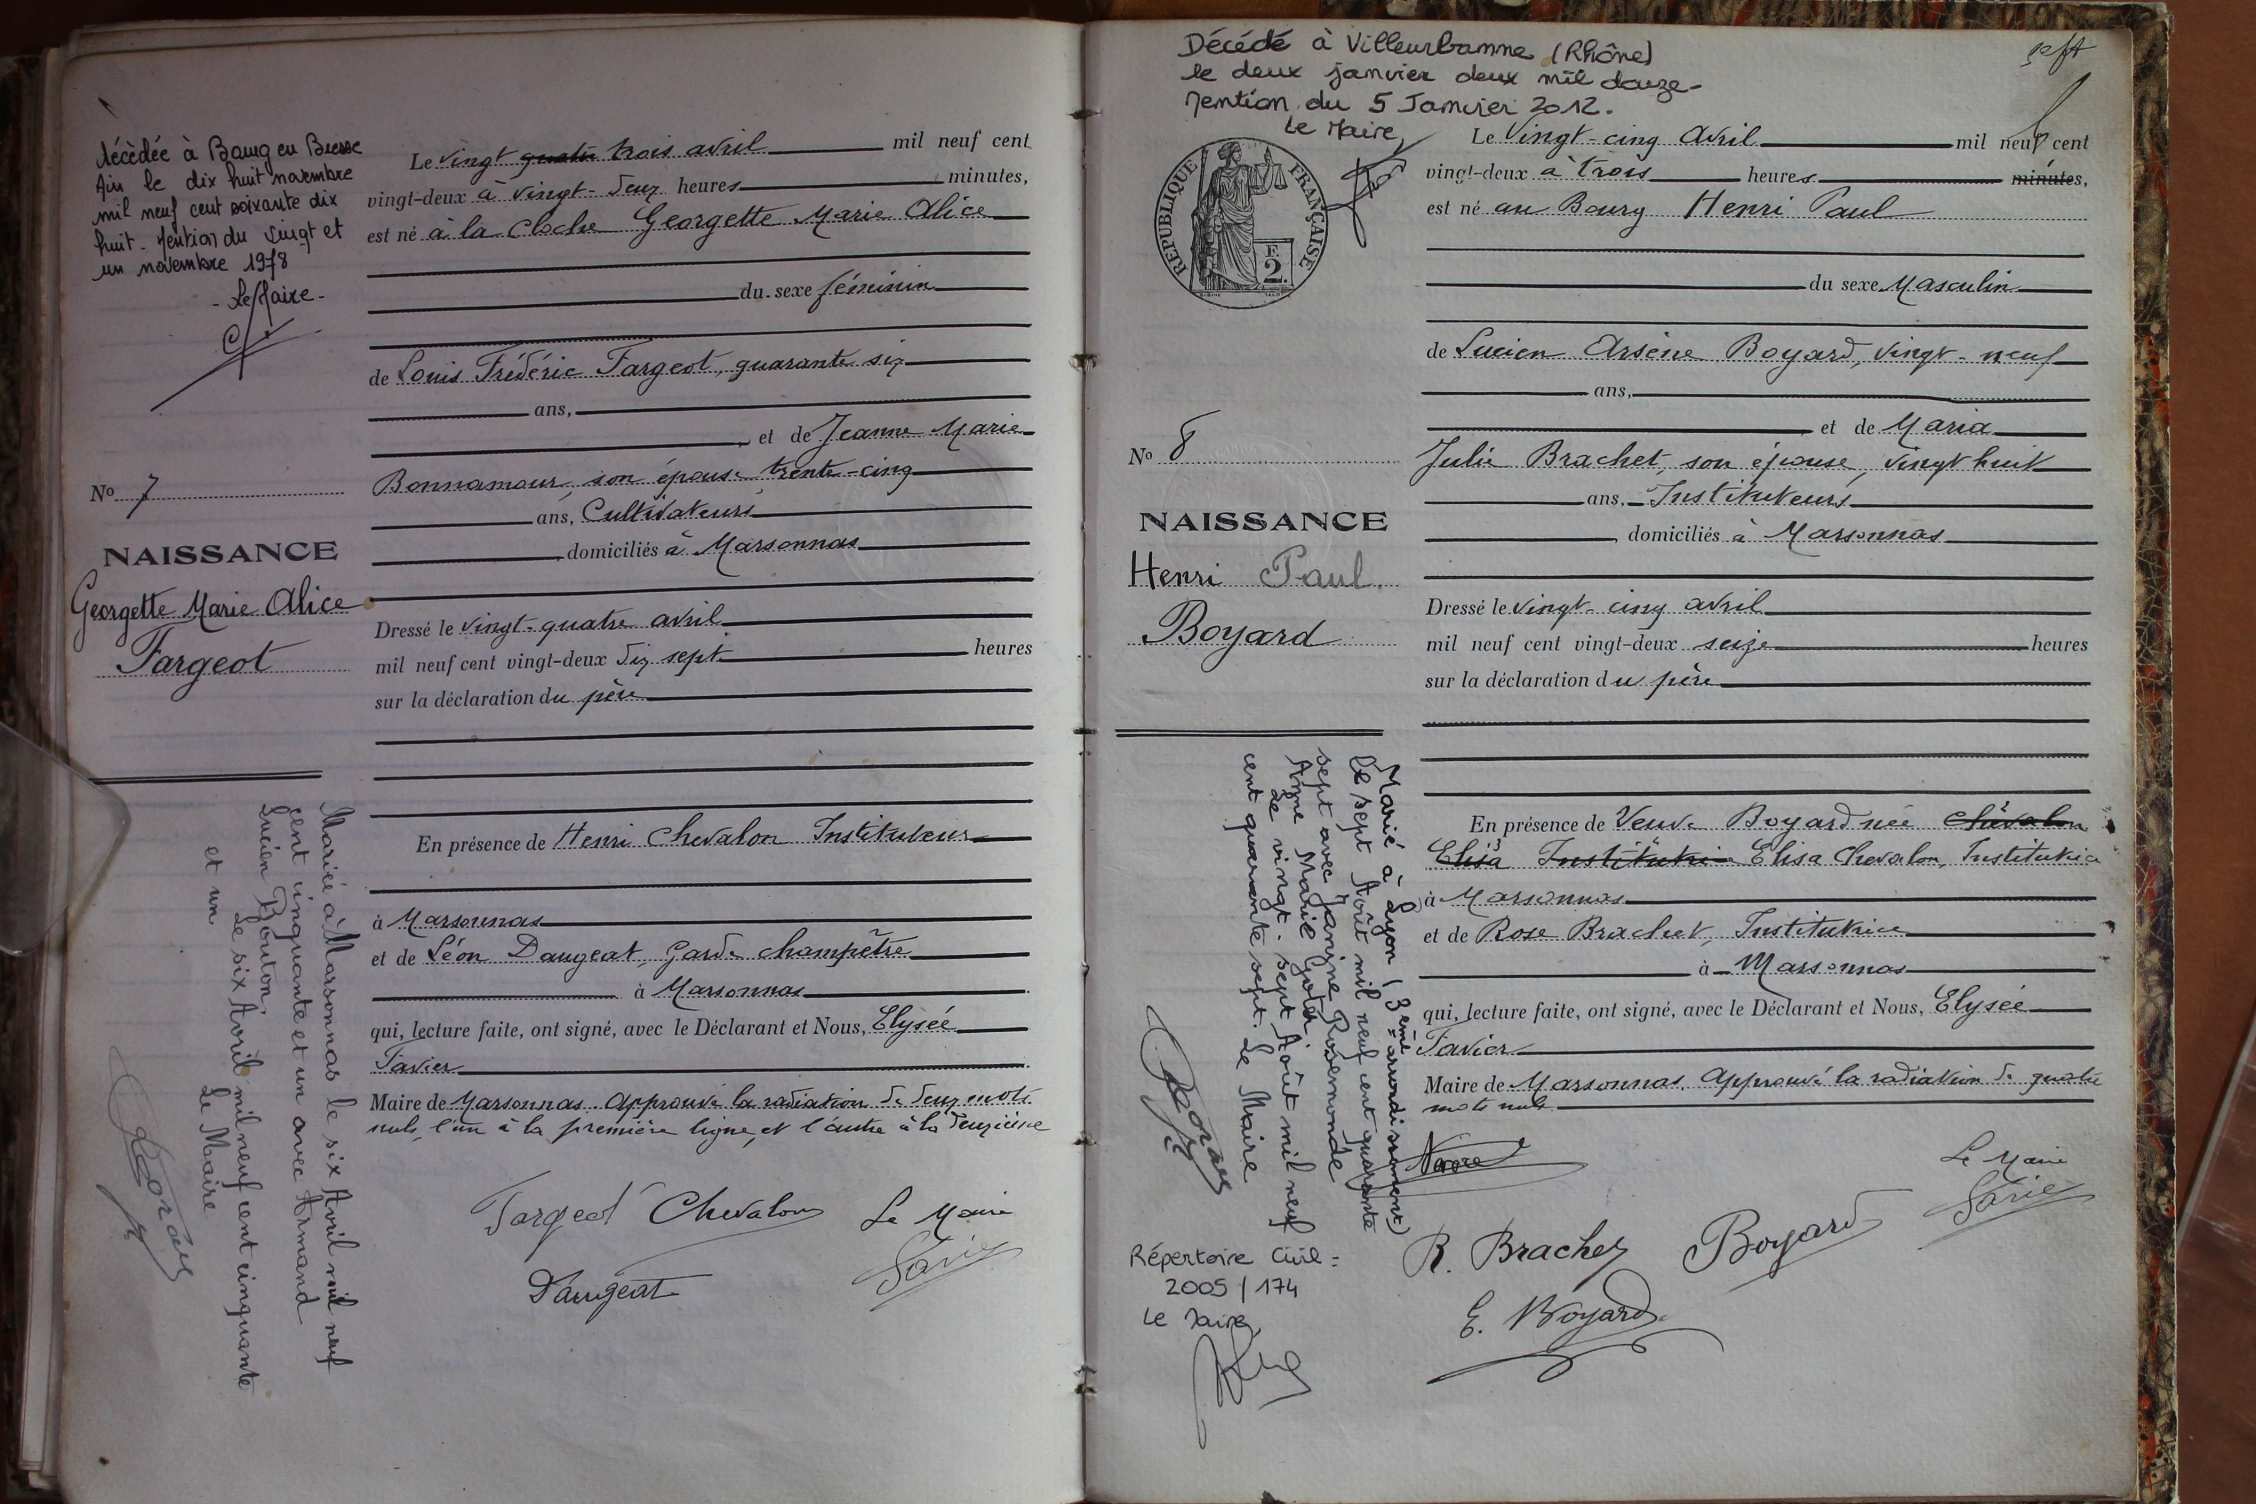 décédée à Bourg en Bresse
Ain le dix huit novembre
mil neuf cent soixante dix
huit - Mention du vingt et
un novembre 1978
- Le Maire -
No 7
NAISSANCE
Georgette Marie Alice
Fargeot
Mariée à Marsonnas le six Avril mil neuf
cent cinquante et un avec Armand
Lucien Bouton.
Le six Avril mil neuf cent cinquante
et un Le Maire
Le vingt quatre trois avril mil neuf cent
vingt-deux à vingt-deux heures minutes,
est né à la Cloche Georgette Marie Alice
du sexe féminin
de Louis Frédéric Fargeot, quarante six
ans,
et de Jeanne Marie
Bonnamour, son épouse, trente-cinq
ans, Cultivateurs
domiciliés à Marsonnas
Dressé le vingt-quatre avril
mil neuf cent vingt-deux dix sept heures
sur la déclaration du père
En présence de Henri Chevalon Instituteur
à Marsonnas
et de Léon Daugeat, Garde champêtre
à Marsonnas
qui, lecture faite, ont signé, avec le Déclarant et Nous, Elysée
Favier
Maire de Marsonnas. Approuvé la radiation de deux mots
nuls, l'un à la première ligne, et l'autre à la deuxième
Fargeot Chevalon Le Maire
Daugeat Favier
Décédé à Villeurbanne (Rhône)
le deux janvier deux mil douze -
Mention du 5 Janvier 2012.
Le Maire,
RÉPUBLIQUE FRANÇAISE
F.
2.
No 8
NAISSANCE
Henri Paul
Boyard
Marié à Lyon (3eme arrondissement)
le sept Août mil neuf cent quarante
sept avec Janine Rosemonde
Anne Marie
Le vingt-sept Août mil neuf
cent quarante sept. Le Maire
Répertoire Civil =
2005 / 174
Le Maire,
Le Vingt-cinq Avril mil neuf cent
vingt-deux à trois heures minutes,
est né au Bourg Henri Paul
du sexe Masculin
de Lucien Arsène Boyard, vingt-neuf
ans,
et de Maria
Julie Brachet, son épouse, vingt huit
ans, Instituteurs
domiciliés à Marsonnas
Dressé le vingt-cinq avril
mil neuf cent vingt-deux seize heures
sur la déclaration du père
En présence de Veuve Boyard née Chevalon
Elisa Institutrice Elisa Chevalon, Institutrice
à Marsonnas
et de Rose Brachet, Institutrice
à Marsonnas
qui, lecture faite, ont signé, avec le Déclarant et Nous, Elysée
Favier
Maire de Marsonnas. Approuvé la radiation de quatre
mots nuls
Le Maire
R. Brachet Boyard Favier
E. Boyard